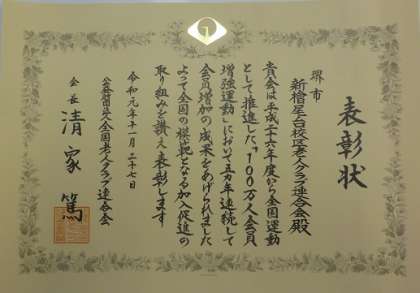 表彰状
堺市
新檜尾台校区老人クラブ連合会殿
貴会は平成二十六年度から全国運動
として推進した「100万人会員
増強運動」において五カ年連続して
会員増加の成果をあげられました
よって全国の模範となる加入促進の
取り組みを讃え表彰します
令和元年十一月二十七日
公益財団法人全国老人クラブ連合会
会長 清家 篤